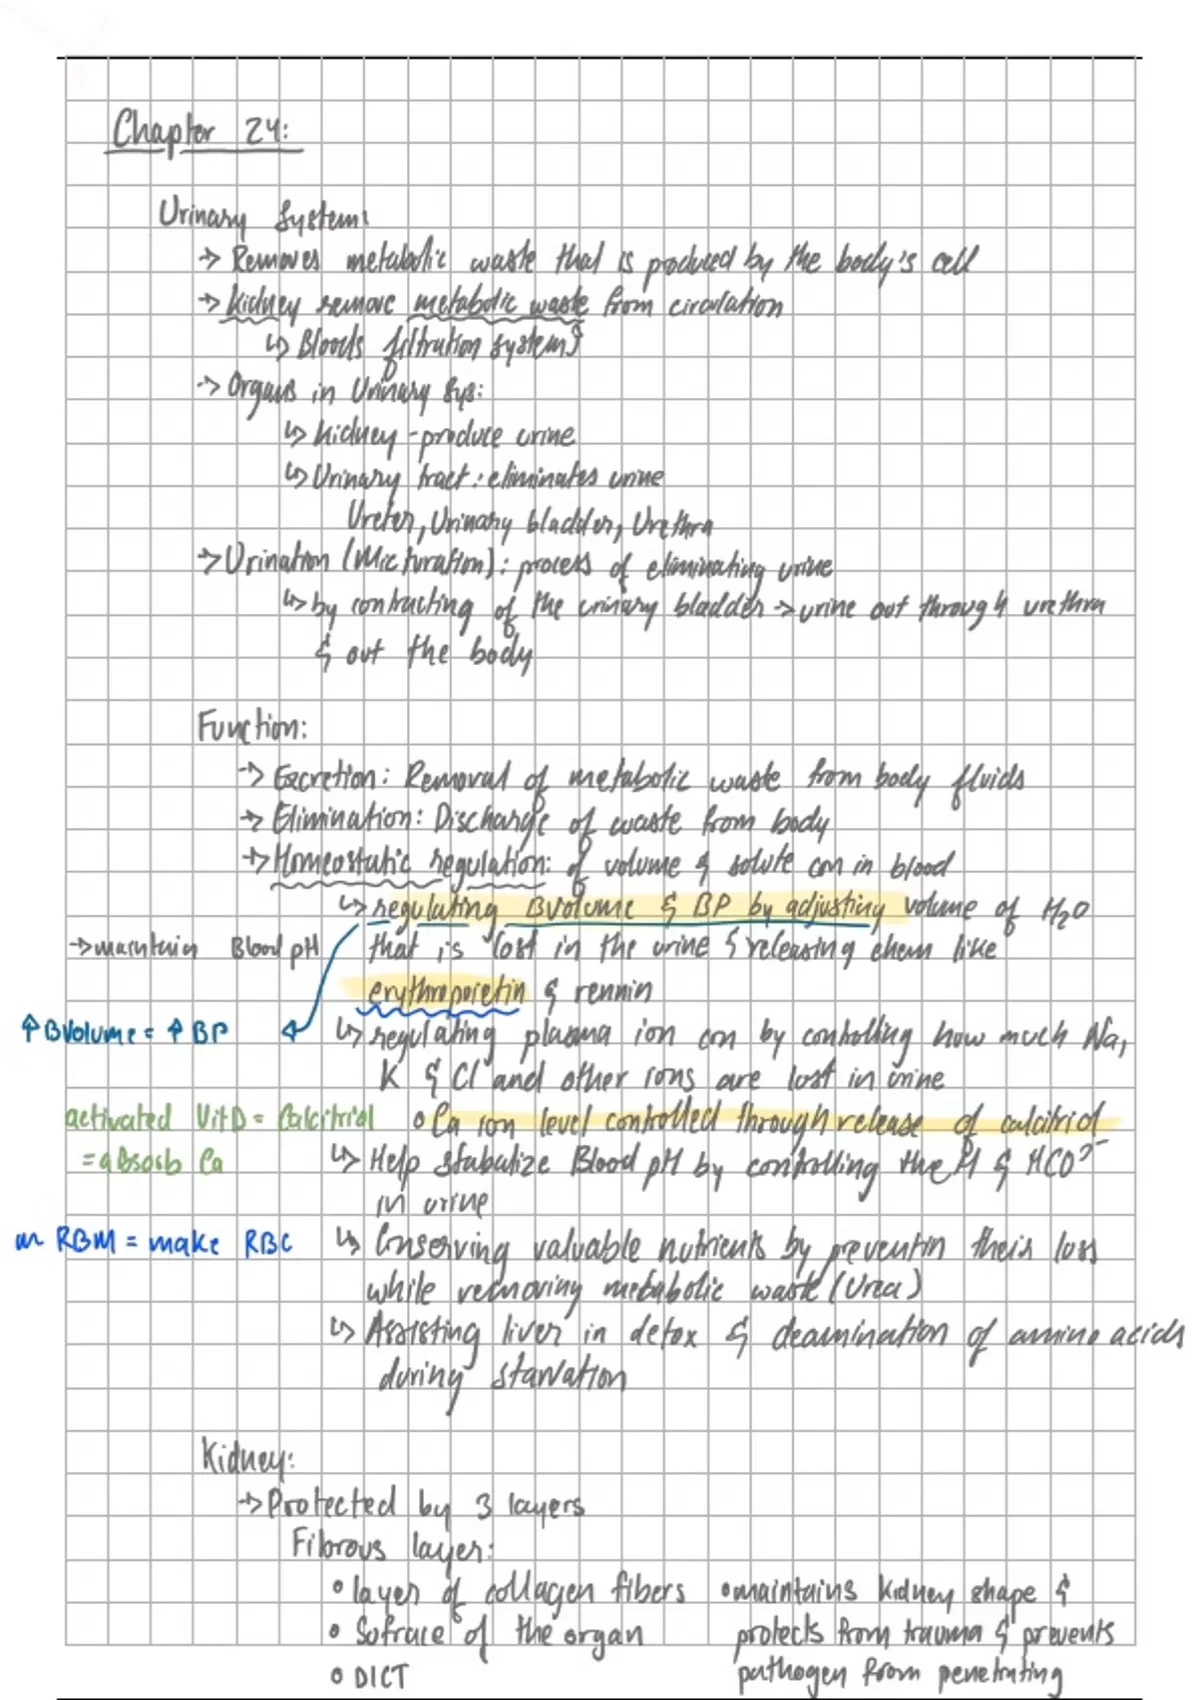 Chapter 24:
Urinary System:
→ Removes metabolic waste that is produced by the body's cell
→ Kidney remove metabolic waste from circulation
↳ Bloods filtration system
→ Organs in Urinary Sys:
↳ Kidney - produce urine
↳ Urinary tract: eliminates urine
Ureter, Urinary bladder, Urethra
→ Urination (Micturation): process of eliminating urine
↳ by contracting of the urinary bladder → urine out through urethra
& out the body
Function:
→ Excretion: Removal of metabolic waste from body fluids
→ Elimination: Discharge of waste from body
→ Homeostatic regulation: of volume & solute con in blood
↳ regulating BVolume & BP by adjusting volume of H₂O
→ maintain Blood pH
that is lost in the urine & releasing chem like
erythropoietin & rennin
↑ BVolume = ↑ BP
↳ regulating plasma ion con by controlling how much Na,
K & Cl and other ions are lost in urine
activated VitD = Calcitriol
• Ca ion level controlled through release of calcitriol
= absorb Ca
↳ Help stabalize Blood pH by controlling the H & HCO³⁻
in urine
RBM = make RBC
↳ Conserving valuable nutrients by preventin their loss
while removing metabolic waste (Urea)
↳ Assisting liver in detox & deamination of amino acids
during starvation
Kidney:
→ Protected by 3 layers
Fibrous layer:
• layer of collagen fibers
• Sufrace of the organ
• DICT
• maintains kidney shape &
protects from trauma & prevents
pathogen from penetrating